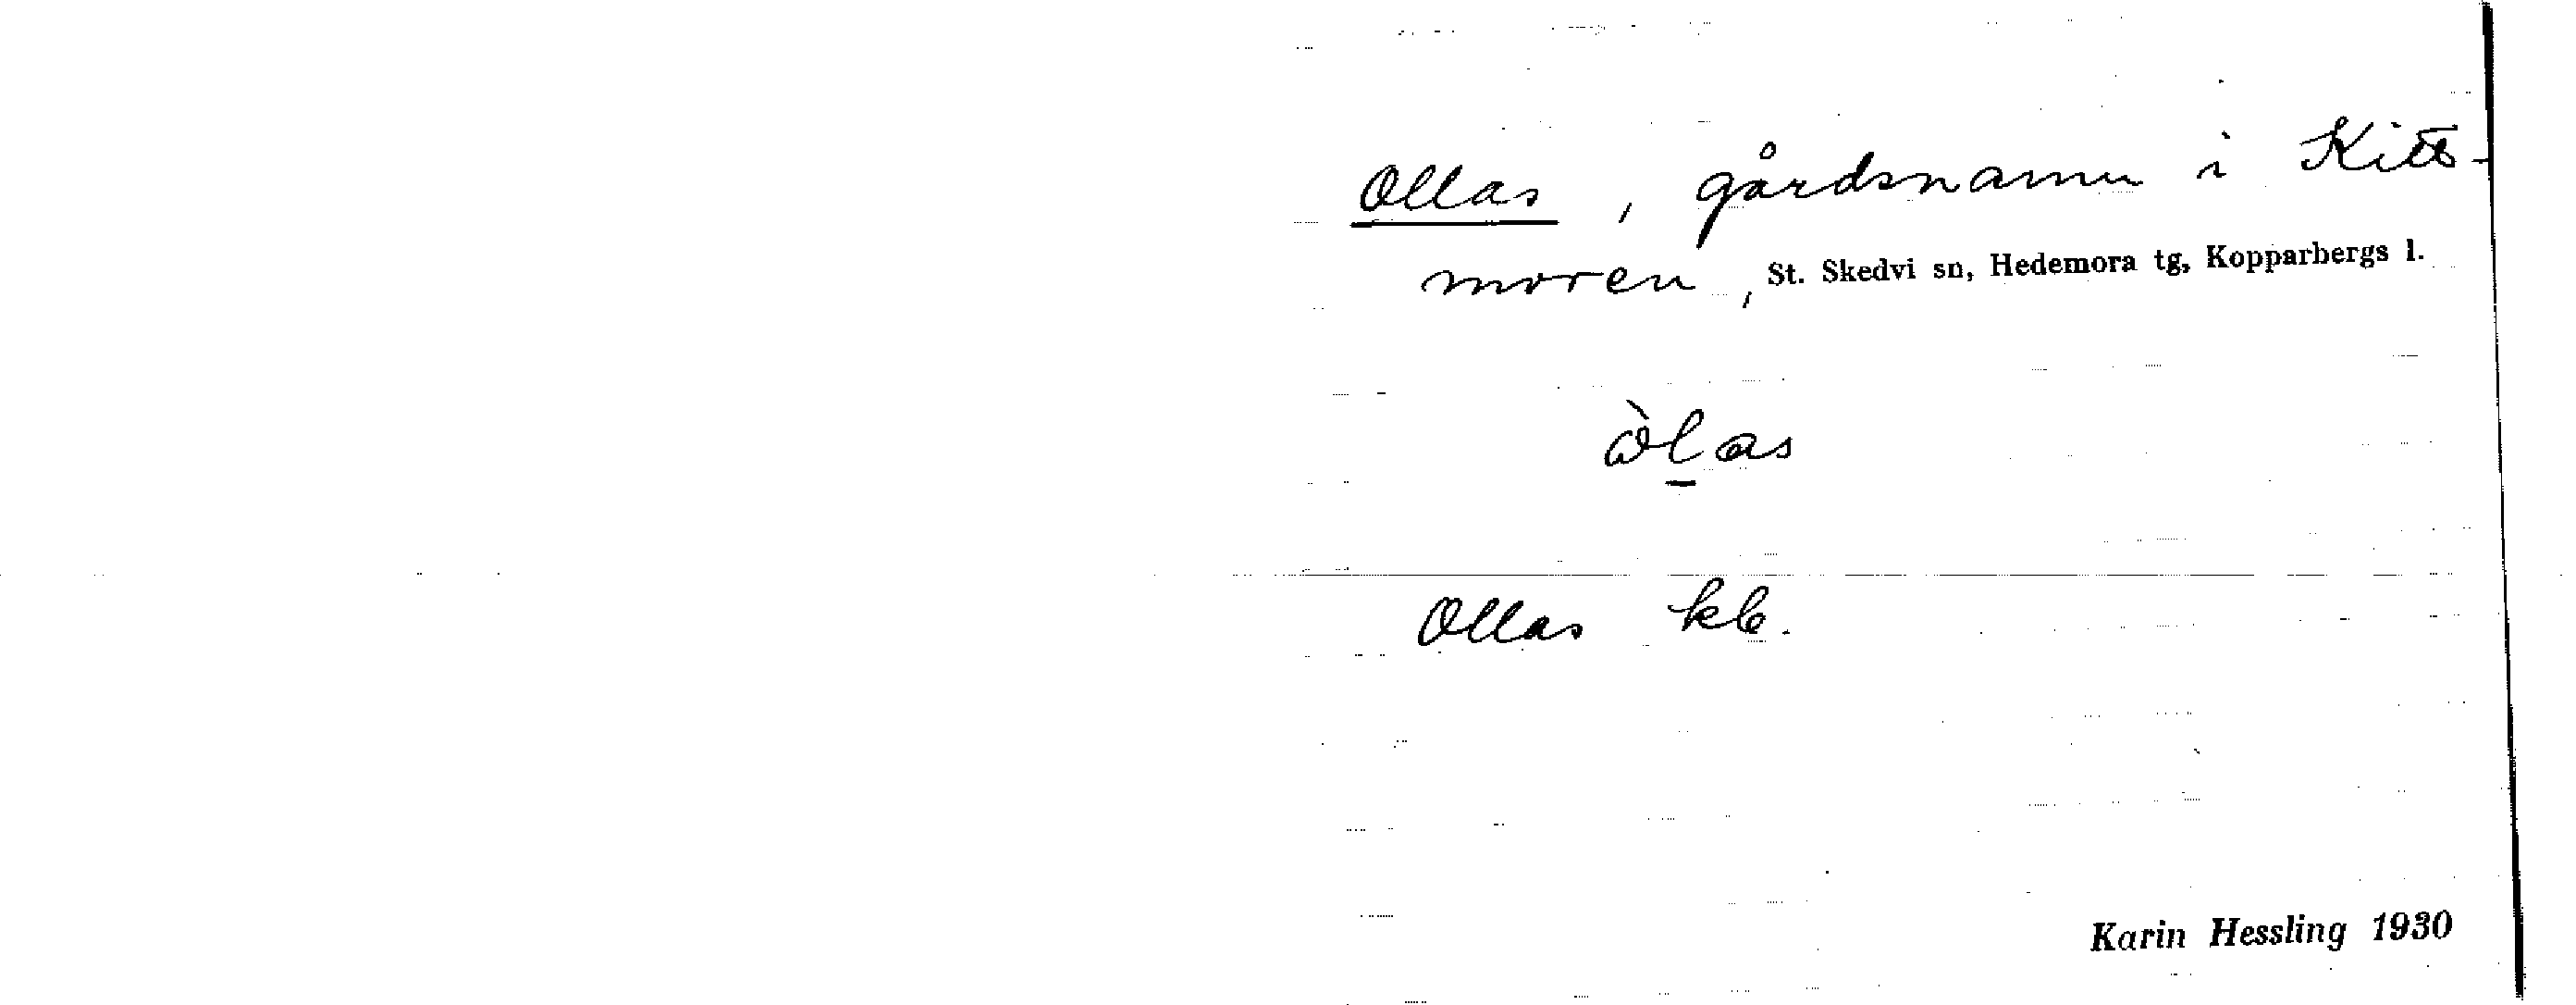 Ollas, gårdsnamn i Kitts-
moren, St. Skedvi sn, Hedemora tg, Kopparbergs l.
Ollas kb.
Karin Hessling 1930